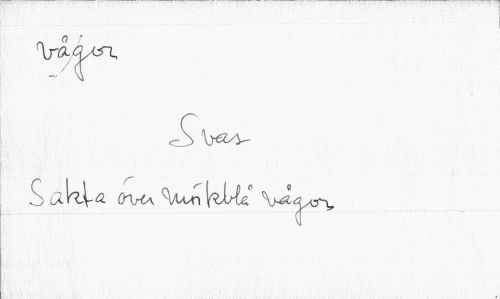 vågor
Svas
Sakta över mörkblå vågor